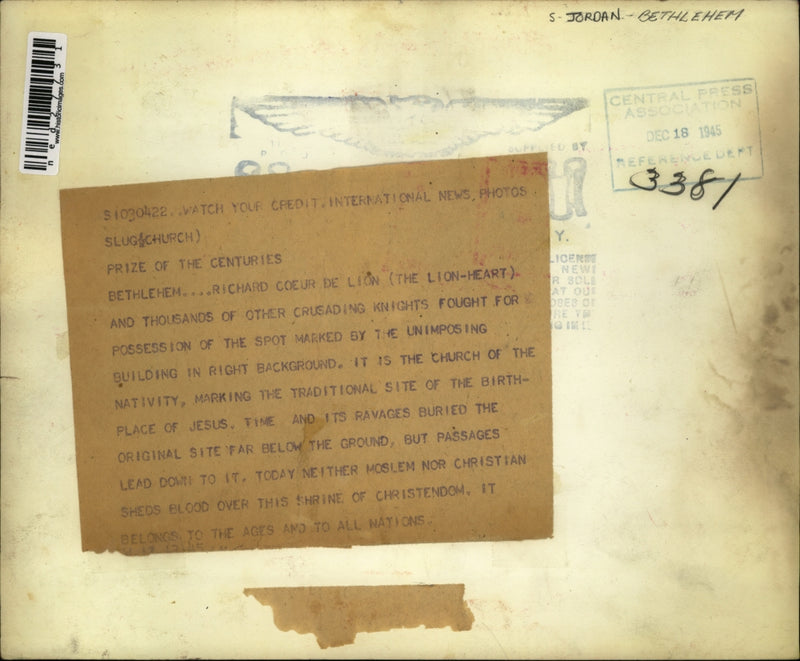 S-JORDAN-BETHLEHEM
ned27731
CENTRAL PRESS
ASSOCIATION
DEC 18 1945
REFERENCE DEPT
3381
SUPPLIED BY
Y.
LICENSE
NEWS
SOLE
AT OUR
SI030422..WATCH YOUR CREDIT.INTERNATIONAL NEWS PHOTOS
SLUG(CHURCH)
PRIZE OF THE CENTURIES
BETHLEHEM....RICHARD COEUR DE LION (THE LION-HEART)
AND THOUSANDS OF OTHER CRUSADING KNIGHTS FOUGHT FOR
POSSESSION OF THE SPOT MARKED BY THE UNIMPOSING
BUILDING IN RIGHT BACKGROUND. IT IS THE CHURCH OF THE
NATIVITY, MARKING THE TRADITIONAL SITE OF THE BIRTH-
PLACE OF JESUS. TIME AND ITS RAVAGES BURIED THE
ORIGINAL SITE FAR BELOW THE GROUND, BUT PASSAGES
LEAD DOWN TO IT. TODAY NEITHER MOSLEM NOR CHRISTIAN
SHEDS BLOOD OVER THIS SHRINE OF CHRISTENDOM. IT
BELONGS TO THE AGES AND TO ALL NATIONS.